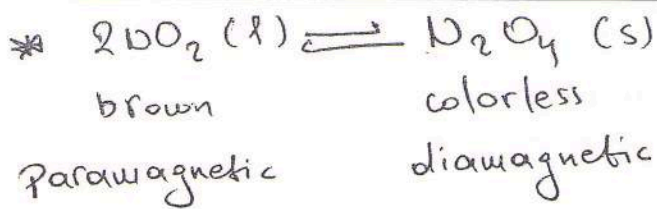 * 2NO₂ (l) ⇌ N₂O₄ (s)
brown colorless
Paramagnetic diamagnetic